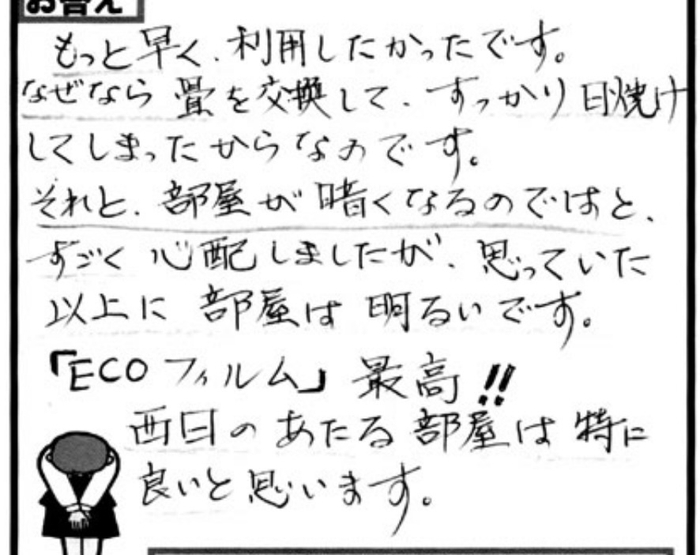 お答え
もっと早く、利用したかったです。
なぜなら 畳を交換して、すっかり日焼け
してしまったからなのです。
それと、部屋が暗くなるのではと、
すごく心配しましたが、思っていた
以上に 部屋は 明るいです。
「ECOフィルム」最高!!
西日のあたる部屋は特に
良いと思います。